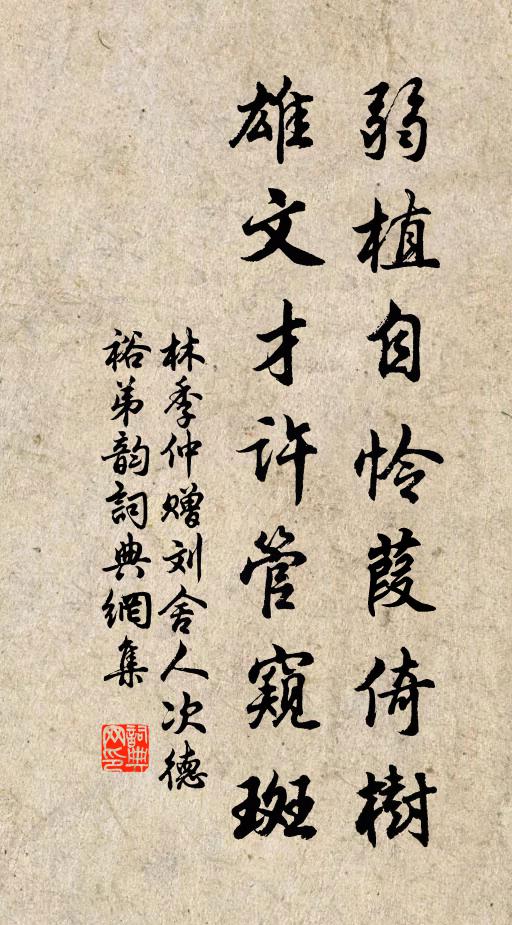 弱植自怜葭倚樹
雄文才许管窺斑
林季仲赠刘舍人次德
裕弟韵詞典網集
詞典網印